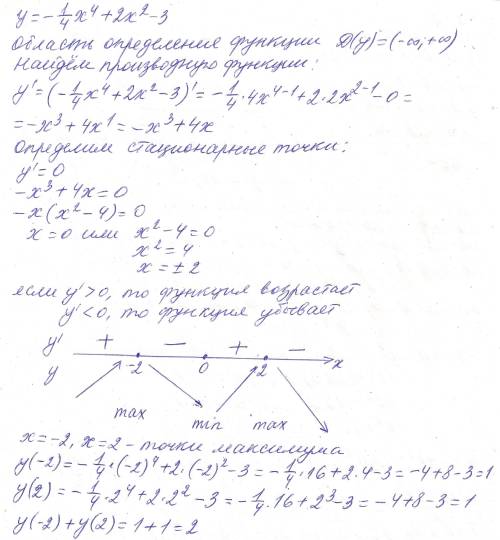 y = -1/4 x⁴ + 2x² - 3
Область определения функции D(y) = (-∞; +∞)
Найдём производную функции:
y' = (-1/4 x⁴ + 2x² - 3)' = -1/4 · 4x⁴⁻¹ + 2 · 2x²⁻¹ - 0 =
= -x³ + 4x¹ = -x³ + 4x
Определим стационарные точки:
y' = 0
-x³ + 4x = 0
-x(x² - 4) = 0
x = 0 или x² - 4 = 0
x² = 4
x = ± 2
если y' > 0, то функция возрастает
y' < 0, то функция убывает
y' + - + -
-2 0 2 x
y
max min max
x = -2, x = 2 - точки максимума
y(-2) = -1/4 · (-2)⁴ + 2 · (-2)² - 3 = -1/4 · 16 + 2 · 4 - 3 = -4 + 8 - 3 = 1
y(2) = -1/4 · 2⁴ + 2 · 2² - 3 = -1/4 · 16 + 2³ - 3 = -4 + 8 - 3 = 1
y(-2) + y(2) = 1 + 1 = 2